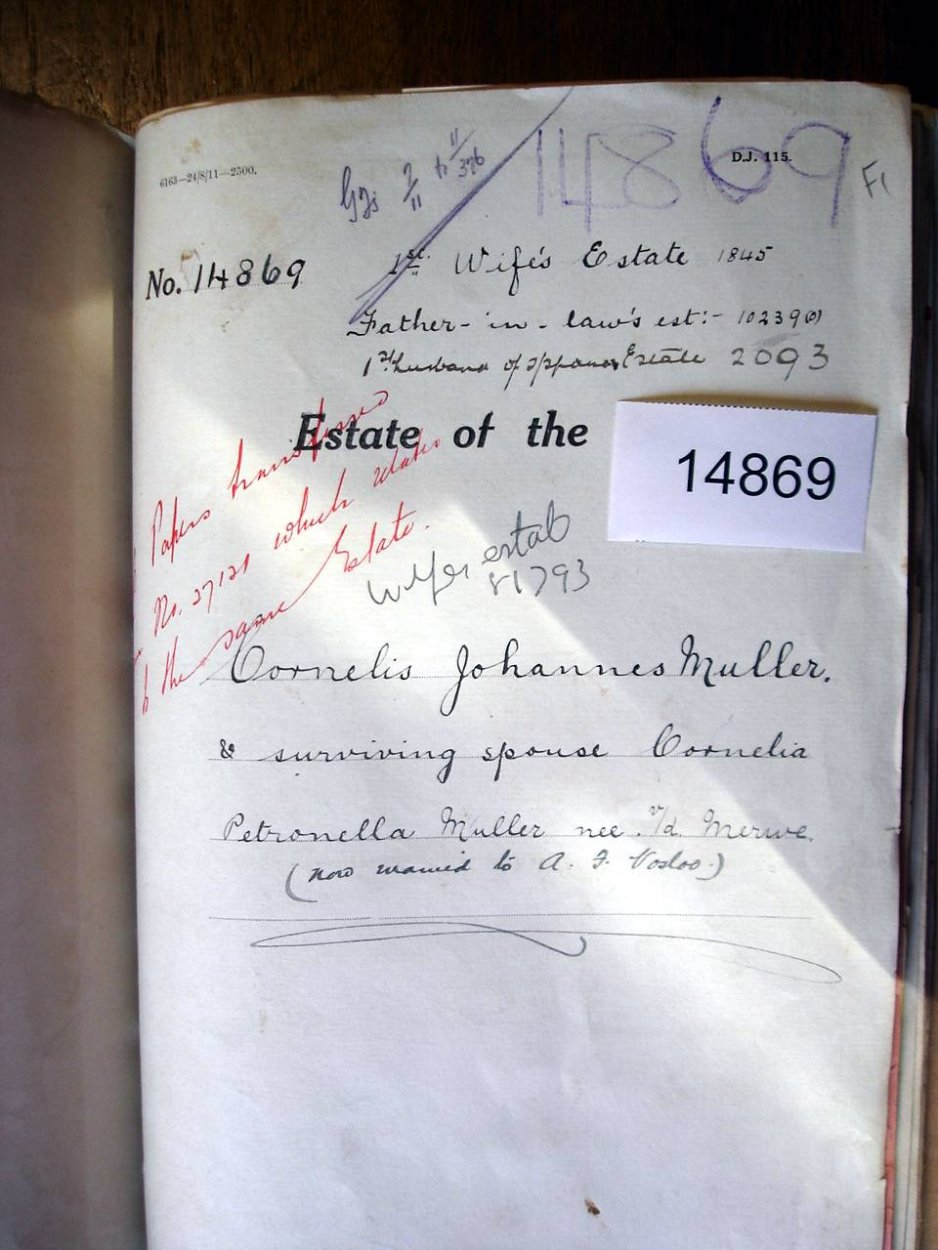 14869
D.J. 115.
6163—24/8/11—2500.
No. 14869
1st. Wife's Estate 1845
Father-in-law's est:- 10239(0)
1st husband of Estate 2093
Estate of the
14869
Papers transferred
No. 27121 which relates
to the same Estate.
Wifes estate
81793
Cornelis Johannes Muller.
& surviving spouse Cornelia
Petronella Muller nee v/d Merwe.
(now married to A. J. Vosloo.)